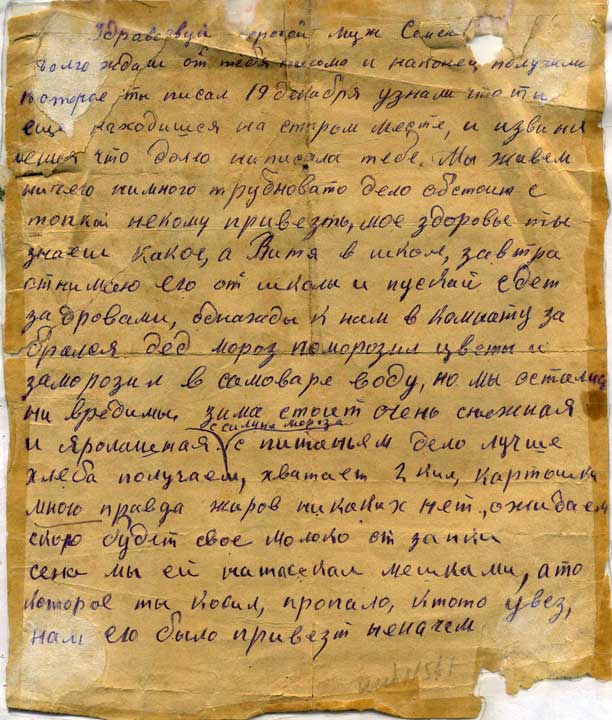 Здравствуй дорогой муж Семен
долго ждали от тебя писма и наконец получили
которое ты писал 19 декабря узнали что ты
еще находишся на старом месте, и извини
меня что долго ни писала тебе. Мы живем
ничего нимного трудновато дело обстоит с
топкой некому привезть, мое здоровье ты
знаеш какое, а Витя в школе, завтра
отнимаю его от школы и пускай едет
за дровами, однажды к нам в комнату за
брался дед мороз поморозил цветы и
заморозил в самоваре воду, но мы остались
ни вредимы. зима стоит очень снежная
с сильна мороза
и с питаньем дело лучше
хлеба получаем, хватает 2 кил, картошки
много правда жиров никаких нет, ожидаем
скоро будет свое молоко от
сена мы ей натаскал мешками, а то
которое ты косил, пропало, ктото увез,
нам его было привезт неначем